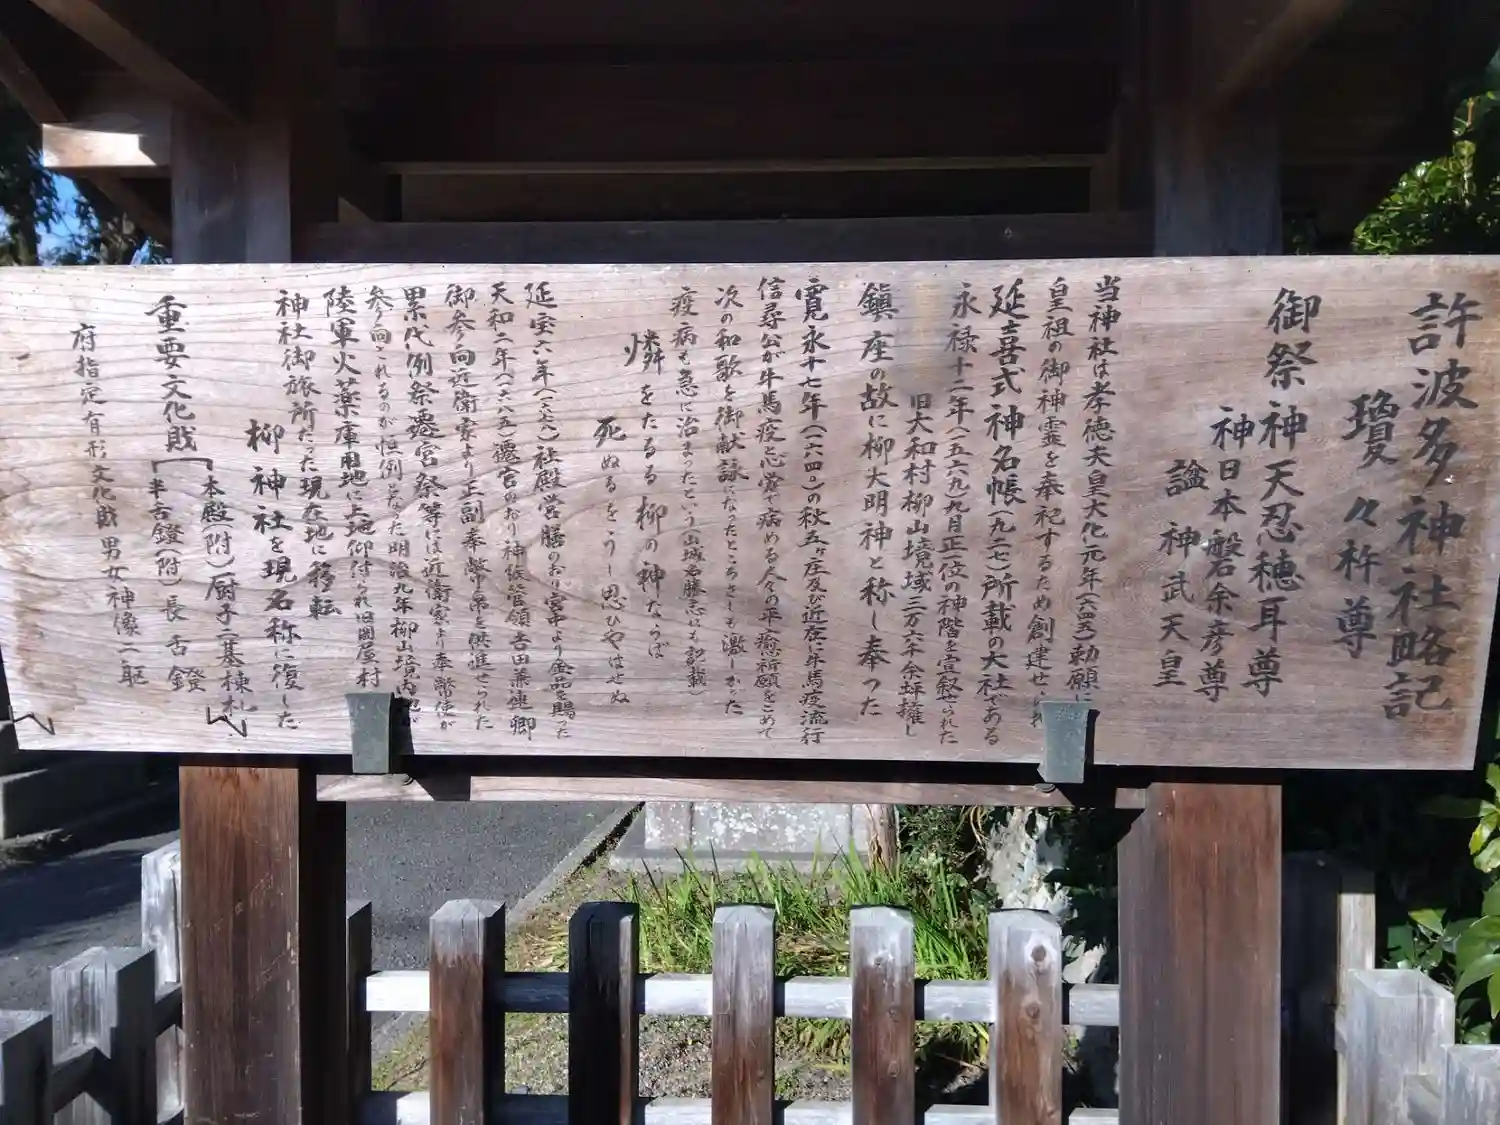 許波多神社略記
瓊々杵尊
御祭神天忍穂耳尊
神日本磐余彦尊
諡神武天皇
当神社は孝徳天皇大化元年(六四五)勅願に
皇祖の御神霊を奉祀するため創建せ
延喜式神名帳(九二七)所載の大社である
永禄十二年(一五六九)九月正位の神階を宣叙せられた
旧大和村柳山境域三万六千余坪擁し
鎮座の故に柳大明神と称し奉つた
寛永十七年(一六四〇)の秋五ヶ庄及び近在に牛馬疫流行
信尋公が牛馬疫と心労で病める人々の平癒祈願をこめて
次の和歌を御献詠になったところさしも激しかった
疫病も急に治まったという(山城名勝志にも記載)
憐をたるる柳の神ならば
死ぬるをうしと思ひやはせぬ
延宝六年(一六七八)社殿営膳のおり宮中より金品を賜った
天和二年(一六八五)遷宮のおり神祇管領吉田兼連卿
御参向近衛家より正副奉幣帛を供進せられた
累代例祭遷宮祭等には近衛家より奉幣使が
参向されるのが恒例となった明治九年柳山境内地が
陸軍火薬庫用地に上地仰付られ旧岡屋村
神社御旅所だった現在地に移転
柳神社を現名称に復した
重要文化財[本殿附)厨子二基棟札一
半古鐙(附)長舌鐙
府指定有形文化財男女神像二躯